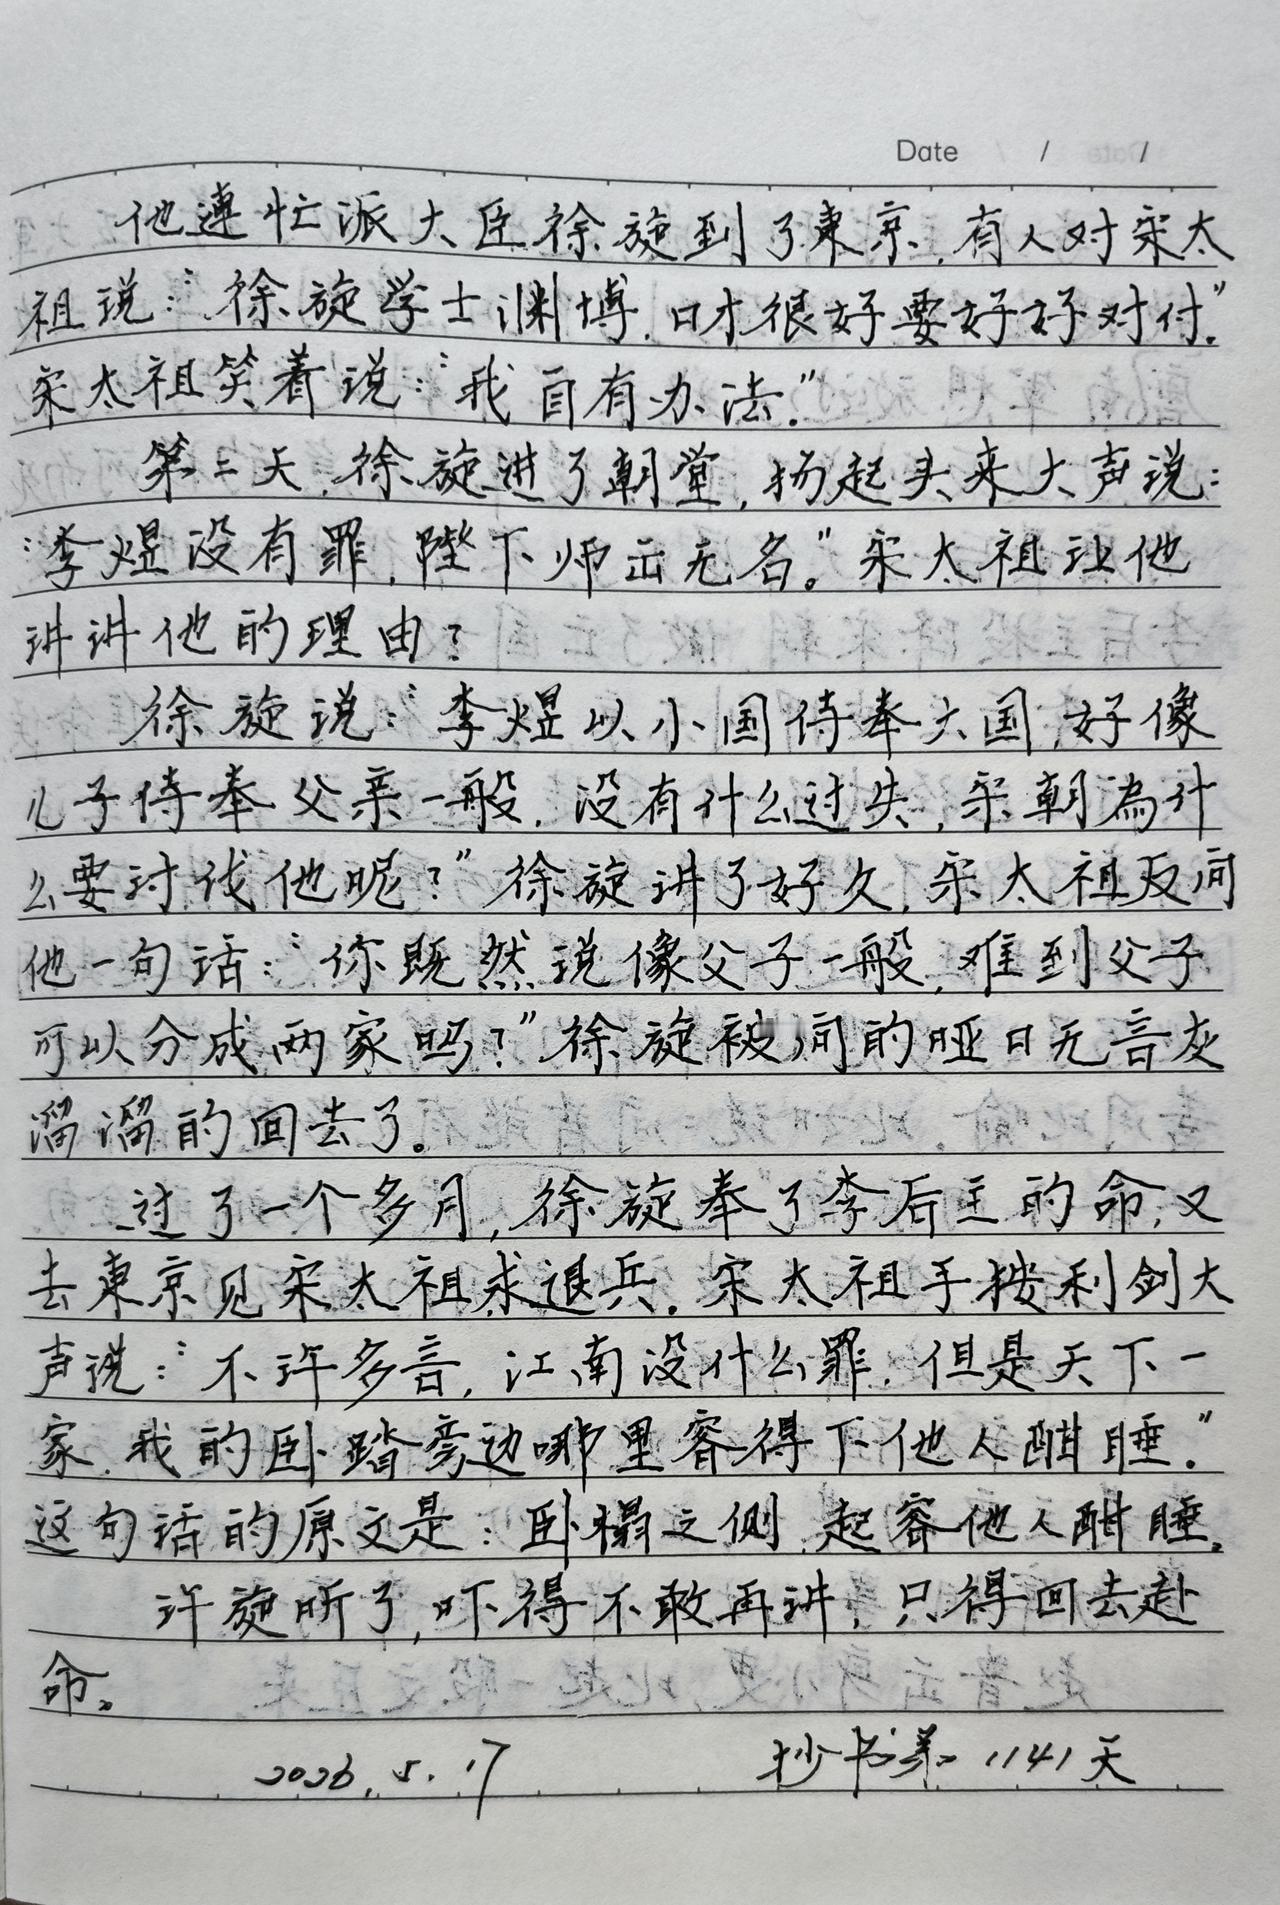 Date / /
他連忙派大臣徐旋到了東京,有人对宋太
祖说:“徐旋学士渊博,口才很好要好好对付”.
宋太祖笑着说:“我自有办法.”
第二天,徐旋进了朝堂,扬起头来大声说:
“李煜没有罪,陛下师出无名。”宋太祖让他
讲讲他的理由?
徐旋说:“李煜以小国侍奉大国,好像
儿子侍奉父亲一般,没有什么过失,宋朝為什
么要讨伐他呢?”徐旋讲了好久,宋太祖反问
他一句话:“你既然说像父子一般,难到父子
可以分成两家吗?”徐旋被问的哑口无音灰
溜溜的回去了。
过了一个多月,徐旋奉了李后主的命,又
去東京见宋太祖求退兵.宋太祖手按利剑大
声说:“不许多音,江南没什么罪,但是天下一
家,我的卧踏旁边哪里容得下他人酣睡.”
这句话的原文是:卧榻之侧,起容他人酣睡.
许旋听了,吓得不敢再讲,只得回去赴
命。
2026.5.17 抄书第1141天